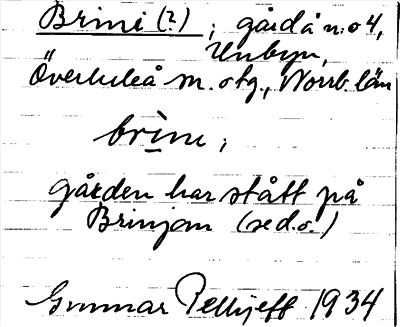 Brini (?); gård å n:o 4,
Unbyn,
Överluleå sn. o tg., Norrb. län
brìnɩ;
gården har stått på
Brinjan (se d. o.)
Gunnar Pellijeff 1934